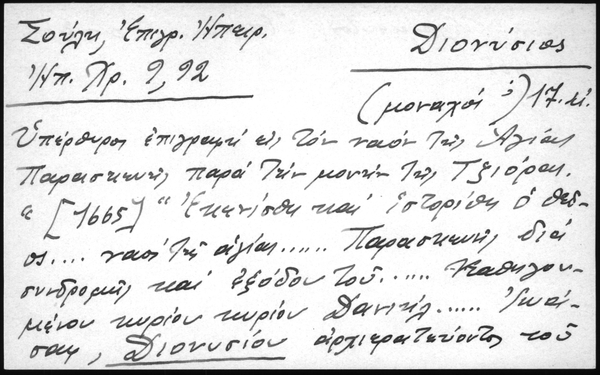 Σούλη, Ἐπιγρ. Ἠπειρ.
Ἠπ. Χρ. 9, 92
Διονύσιος
(μοναχοί ;) 17. αἰ.
Ὑπέρθυρος ἐπιγραφή εἰς τόν ναόν τῆς Ἁγίας
Παρασκευῆς παρά τήν μονήν τῆς Τζιόρας.
" [1665] " Ἐκενίσθη καί ἱστορίθη ὁ θεῖ-
ος .... ναός τῆς ἁγίας ...... Παρασκευῆς διά
συνδρομῆς καί ἐξόδου τοῦ ...... Καθηγου-
μένου κυρίου κυρίου Δανιήλ ...... Ἰωά-
σαφ, Διονυσίου ἀρχιερατεύοντος τοῦ